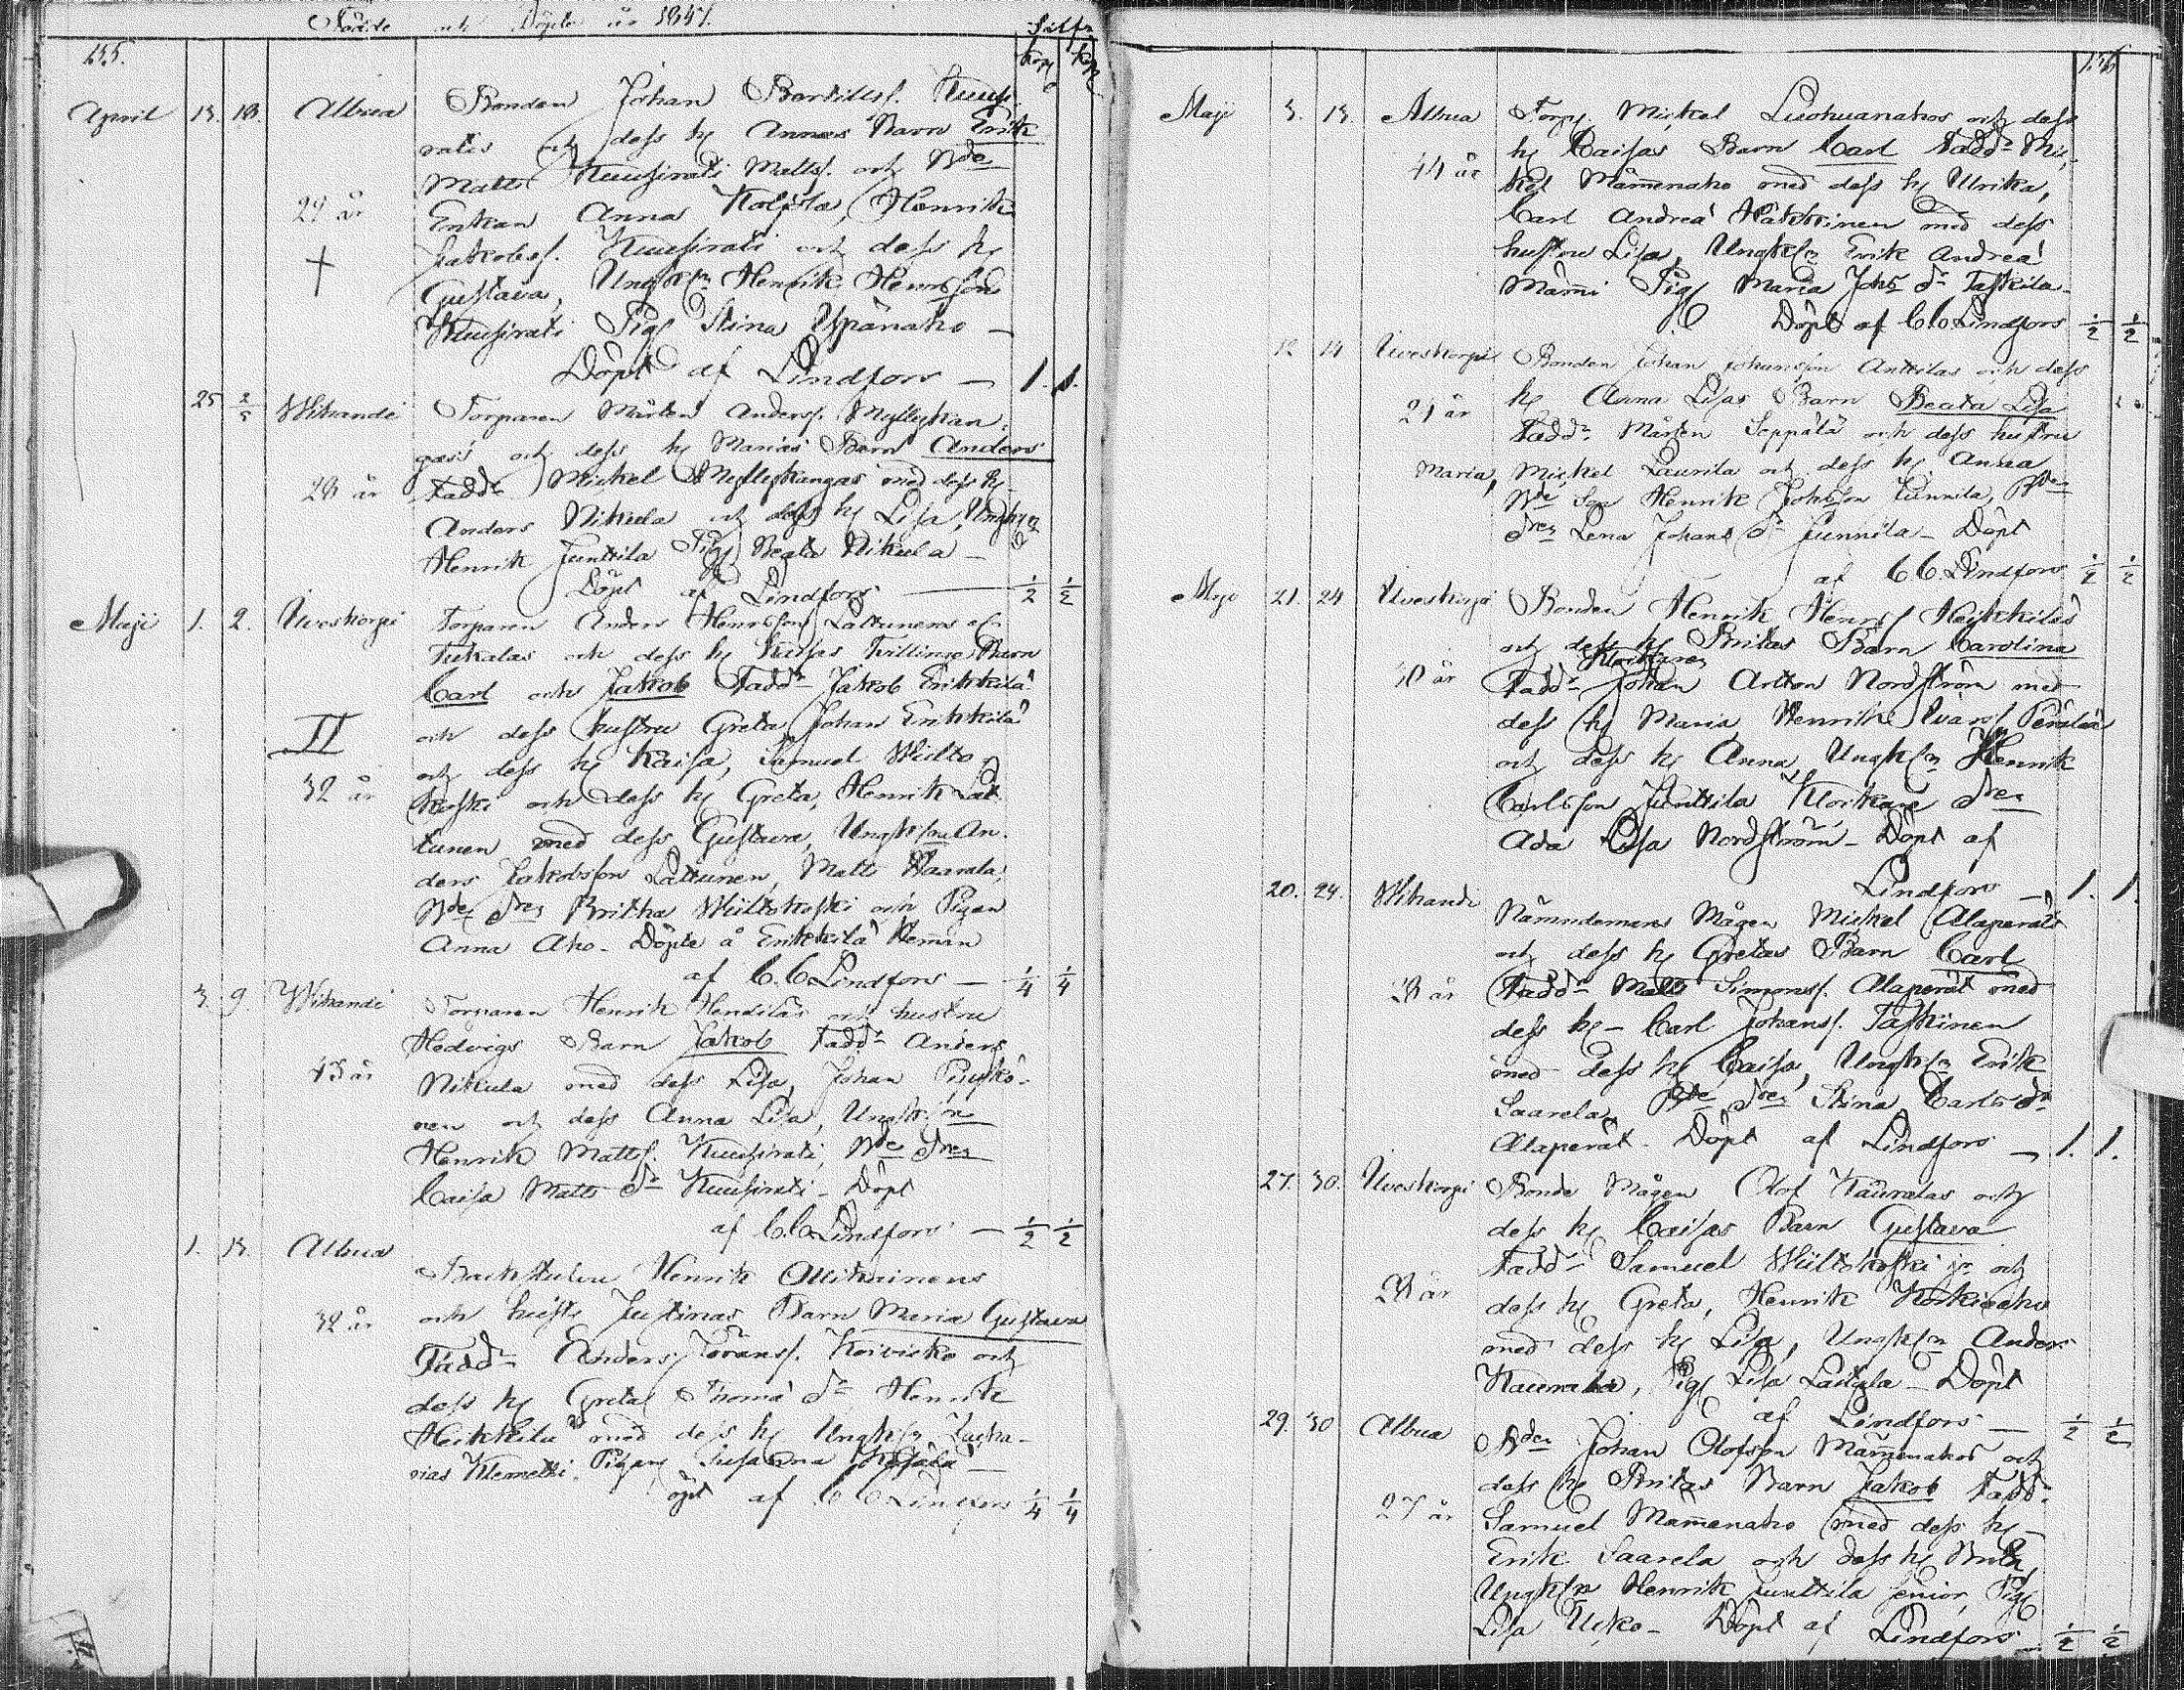 Födde och Döpte år 1847.
155.
April 13. 18. Albua Bonden Johan Bertilss. Kuusi
ratis och dess h. Annas Barn Erik
Matts Kuusirati Matts. och Bde
29 år Enkan Anna Kolpola, Henrik
Jakobss. Kuusirati och dess h.
Gustava, Ungk:n Henrik Henrsson
Kuusirati Pig. Stina Ypänaho —
Döpt af Lindfors — 1. 1.
25 2/5 Wihandi Torparen Mårten Anderss. Myllykan-
gas's och dess h. Marias Barn Anders
28 år Fadd: Mickel Myllykangas med dess h.
Anders Nikula och dess h. Lisa, Ungk:n
Henrik Junttila Pig. Beata Nikula —
Döpt af Lindfors — 1/2 1/2
Maji 1. 2. Uveskorpi Torparen Anders Henrsson Lattunens
Tukalas och dess h. Kaisas Tvillinge Barn
Carl och Jakob Fadd: Jakob Erikkilä
II och dess hustru Greta, Johan Erikkilä
och dess h. Kaisa, Samuel Wiilto-
32 år koski och dess h. Greta, Henrik Lat-
tunen med dess Gustava, Ungk:n An-
ders Jakobsson Lattunen, Matts Waarala,
Bde Dren Britha Wiiltokoski och Pigan
Anna Aho. Döpte å Erikkilä Heman
af C. C. Lindfors — 1/4 1/4
3. 9. Wihandi Torparen Henrik Hendiläs och hustru
Hedvigs Barn Jakob Fadd: Anders
43 år Nikula med dess Lisa, Johan
nen och dess Anna Lisa, Ungk:n
Henrik Matts. Kuusirati, Bde Dren
Caisa Matts Dr Kuusirati — Döpt
af C. C. Lindfors — 1/2 1/2
1. 13. Albua Backstuhu Henrik Ollikainens
32 år och hust. Justinas Barn Maria Gustava
Fadd: Anders Göranss. Koivisko och
dess h. Greta Thoma Dr Henrik
Heikkilä med dess h. Ungk:n Zacha-
rias Klemetti, Pigan Susanna
öpt af C C Lindfors 1/4 1/4
156
Maji 3. 13. Albua Torp. Mickel Luohuanahos och dess
44 år h. Caisas Barn Carl Fadd: Mic-
kel Mämmenaho med dess h. Ulrika,
Carl Andrea Häkkinen med dess
hustru Lisa, Ungk:n Erik Andrea
Mämmi Pig. Maria Johs Dr Taskila —
Döpt af C. C. Lindfors 1/2 1/2
12 14 Uveskorpi Bonden Johan Johansson Anttilas och dess
29 år h. Anna Lisas Barn Beata Lisa
Fadd: Mårten Seppälä och dess hustru
Maria, Mickel Laurila och dess h. Anna
Bde Son Henrik Johsson Junnila, Bde
Dren Lena Johans Dr Junnila — Döpt
af C C. Lindfors 1/2 1/2
Maji 21. 24 Uveskorpi Bonden Henrik Henrs. Heikkiläs
och dess h. Britas Barn Carolina
40 år Fadd: Klockaren Johan Anton Nordström med
dess h. Maria, Henrik Ivarss. Perälä
och dess h. Anna, Ungk:n Henrik
Carlsson Junttila Klockare Dren
Ada Lisa Nordström — Döpt af
Lindfors — 1. 1.
20. 24. Wihandi Nämndemans Mågen Mickel Alaperäts
och dess h. Gretas Barn Carl
28 år Fadd: Matts Simonss. Alaperät med
dess h. — Carl Johanss. Taskinen
med dess h. Caisa, Ungk:n Erik
Saarela, Bde Dren Stina Carls Dr
Alaperät. Döpt af Lindfors — 1. 1.
27. 30. Uveskorpi Bonde Mågen Olof Kauralas och
dess h. Caisas Barn Gustava
Fadd: Samuel Wiiltokoski jr och
28 år dess h. Greta, Henrik Korkioaho
med dess h. Lisa, Ungk:n Anders
Kaurala, Pig. Lisa Laitala — Döpt
af Lindfors — 1/2 1/2
29. 30 Albua Bden Johan Olofsson Mämmenahos och
dess h. Britas Barn Jakob Fadd:
27 år Samuel Mämmenaho med dess h. —
Erik Saarela och dess h. Brita,
Ungk:n Henrik Junttila senior, Pig.
Lisa Ucko — Döpt af Lindfors — 1/2 1/2